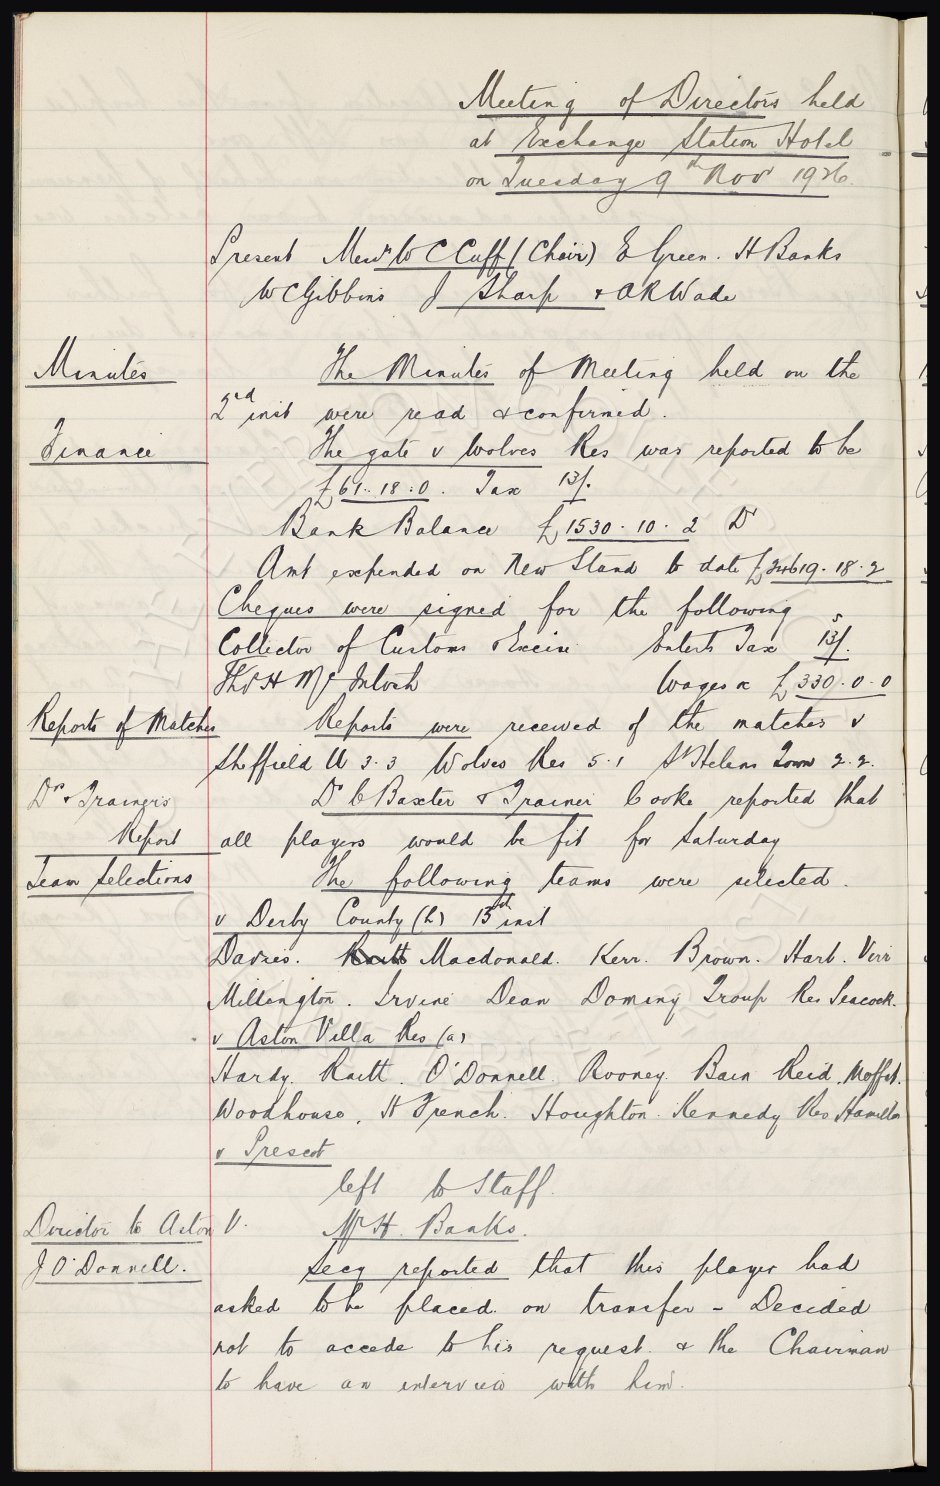 Meeting of Directors held
at Exchange Station Hotel
on Tuesday 9th Nov 1926.
Present Messrs W C Cuff (Chair) E Green. H Banks
W C Gibbins J Sharp & A R Wade
Minutes The Minutes of Meeting held on the
2nd inst were read & confirmed.
Finance The gate v Wolves Res was reported to be
£61.18.0. Tax 13/.
Bank Balance £1530.10.2 Dr
Amt expended on New Stand to date £34619.18.2
Cheques were signed for the following
Collector of Customs & Excise Enterts Tax 13/.
Thos H McIntosh Wages &c £330.0.0
Reports of Matches Reports were received of the matches v
Sheffield U 3.3 Wolves Res 5.1 St Helens Town 2.2.
Dr & Trainer's Dr C Baxter & Trainer Cooke reported that
Report all players would be fit for Saturday
Team Selections The following teams were selected.
v Derby County (h) 13th inst
Davies. Raitt Macdonald. Kerr. Brown. Hart. Virr
Millington. Irvine Dean Dominy Troup Res Peacock.
v Aston Villa Res (a)
Hardy. Raitt. O'Donnell. Rooney. Bain Reid. Moffat.
Woodhouse, H French. Houghton. Kennedy Res Hamilton
v Prescot
left to Staff.
Director to Aston V. Mr H. Banks.
J O'Donnell. Secy reported that this player had
asked to be placed on transfer - Decided
not to accede to his request. & the Chairman
to have an interview with him.